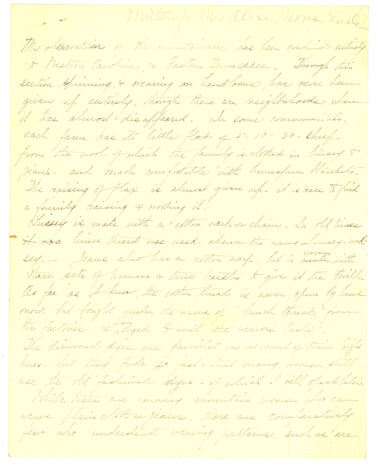 My observation of the mountaineers has been confined entirely
to Western Carolina & Eastern Tennessee. Through this
section spinning & weaving on hand looms has never been
given up entirely, though there are neighborhoods where
it has almost disappeared. In some communities
each farm has its little flock of 5-10-20- sheep
from the wool of which the family is clothed in linsey &
jeans - and made comfortable with homespun blankets.
The raising of flax is almost given up. it is rare to find
a family raising & working it.
Linsey is made with a cotton warp or chain. In old times
linen thread was used. whence the name Linsey-wool
sey. - Jeans also has a cotton warp, but is woven with
three sets of harness & three treadles to give it the twill.
As far as I know the cotton thread is never spun by hand
now. but bought under the name of "bunch thread" from
the factories &
The diamond dyes are familiar on account of their bright
hues. but they fade so fast- that many women still
use the old fashioned dyes - of which I will speak later.
While there are many mountain women who can
weave plain cloth & jeans, there are comparatively
few who understand weaving patterns such as are